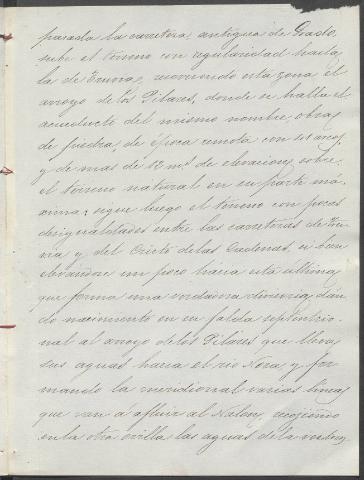 pasada la carretera antigua de Grado,
sube el terreno con regularidad hasta
la de Trubia, recorriendo esta zona el
arroyo de los Pilares, donde se halla el
acueducto del mismo nombre, obras
de piedra, de época remota con sus arcos,
y de mas de 12 m.s de elevacion sobre
el terreno natural en su parte má-
xima; sigue luego el terreno con pocas
desigualdades entre las carreteras de Tru-
bia y del Cristo de las Cadenas,
un poco hacia esta última
que forma una verdadera divisoria, dán-
do nacimiento en su falda septentrio-
nal al arroyo de los Pilares que lleva
sus aguas hacia el rio Nora, y for
mando la meridional varias lineas
que van a afluir al Nalon, recojiendo
en la otra orilla las aguas de la